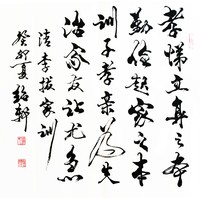 孝悌立身之本
勤俭起家之本
训子孝亲为先
治家友让尤急
清李拔家训
癸卯夏